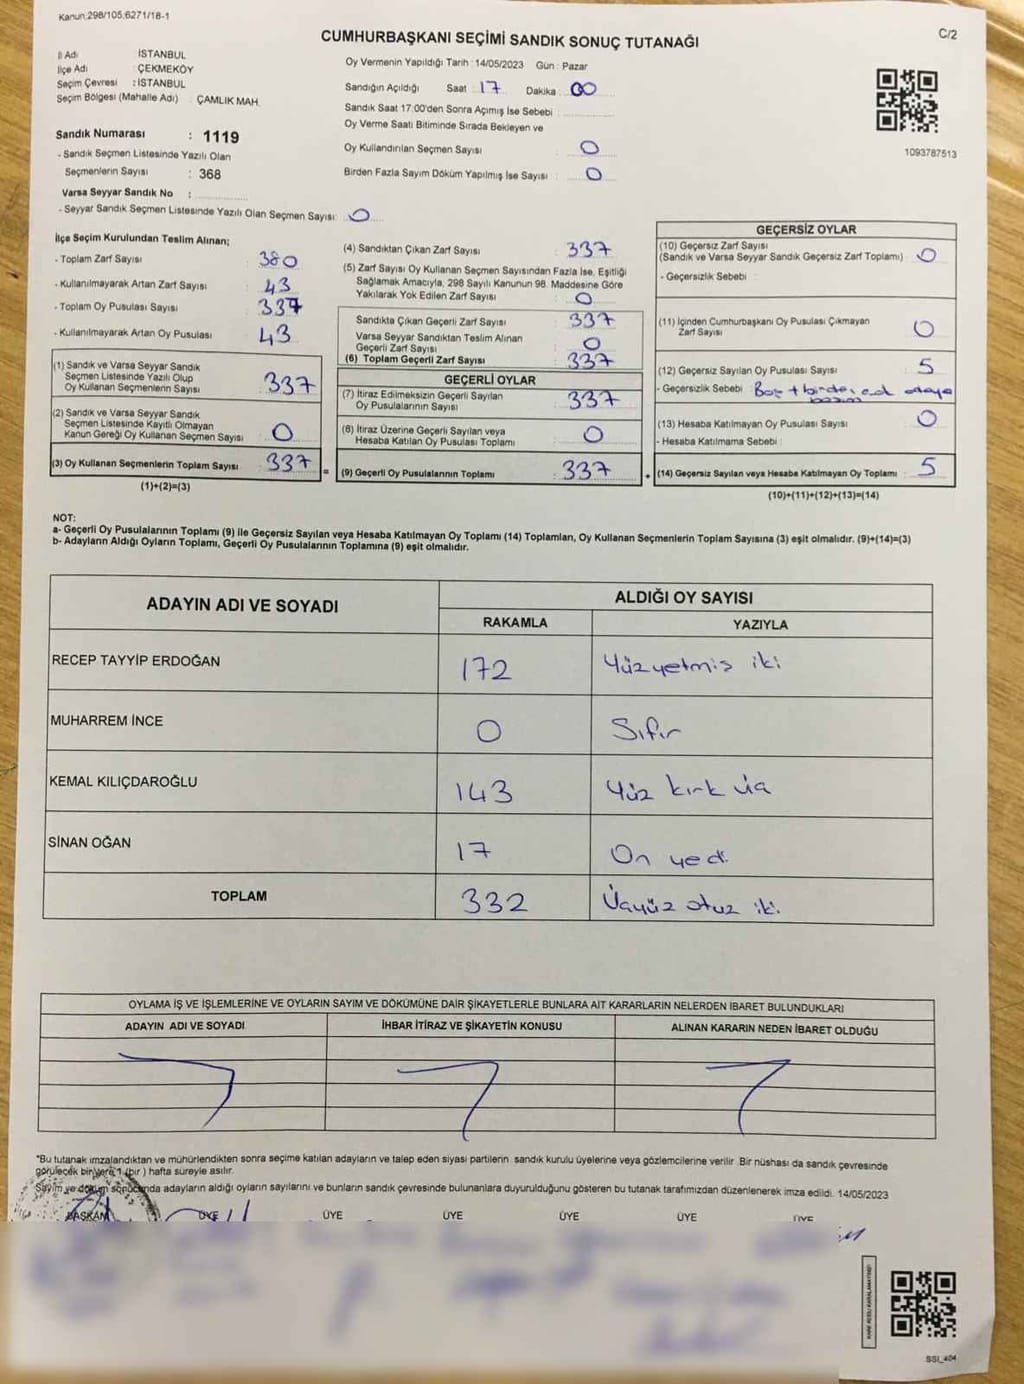 Kanun:298/105.6271/18-1
C/2
CUMHURBAŞKANI SEÇİMİ SANDIK SONUÇ TUTANAĞI
İl Adı : İSTANBUL
İlçe Adı : ÇEKMEKÖY
Seçim Çevresi : İSTANBUL
Seçim Bölgesi (Mahalle Adı) : ÇAMLIK MAH.
Oy Vermenin Yapıldığı Tarih : 14/05/2023 Gün : Pazar
Sandığın Açıldığı Saat : 17 Dakika : 00
Sandık Saat 17:00'den Sonra Açımış İse Sebebi :
Oy Verme Saati Bitiminde Sırada Bekleyen ve
Oy Kullandırılan Seçmen Sayısı : 0
Birden Fazla Sayım Döküm Yapılmış İse Sayısı : 0
1093787513
Sandık Numarası : 1119
- Sandık Seçmen Listesinde Yazılı Olan
Seçmenlerin Sayısı : 368
Varsa Seyyar Sandık No :
- Seyyar Sandık Seçmen Listesinde Yazılı Olan Seçmen Sayısı: 0
İlçe Seçim Kurulundan Teslim Alınan;
- Toplam Zarf Sayısı : 380
- Kullanılmayarak Artan Zarf Sayısı : 43
- Toplam Oy Pusulası Sayısı : 337
- Kullanılmayarak Artan Oy Pusulası : 43
(1) Sandık ve Varsa Seyyar Sandık
Seçmen Listesinde Yazılı Olup
Oy Kullanan Seçmenlerin Sayısı : 337
(2) Sandık ve Varsa Seyyar Sandık
Seçmen Listesinde Kayıtlı Olmayan
Kanun Gereği Oy Kullanan Seçmen Sayısı : 0
(3) Oy Kullanan Seçmenlerin Toplam Sayısı : 337
(1)+(2)=(3)
(4) Sandıktan Çıkan Zarf Sayısı : 337
(5) Zarf Sayısı Oy Kullanan Seçmen Sayısından Fazla İse, Eşitliği
Sağlamak Amacıyla, 298 Sayılı Kanunun 98. Maddesine Göre
Yakılarak Yok Edilen Zarf Sayısı : 0
Sandıkta Çıkan Geçerli Zarf Sayısı : 337
Varsa Seyyar Sandıktan Teslim Alınan
Geçerli Zarf Sayısı : 0
(6) Toplam Geçerli Zarf Sayısı : 337
GEÇERLİ OYLAR
(7) İtiraz Edilmeksizin Geçerli Sayılan
Oy Pusulalarının Sayısı : 337
(8) İtiraz Üzerine Geçerli Sayılan veya
Hesaba Katılan Oy Pusulası Toplamı : 0
= (9) Geçerli Oy Pusulalarının Toplamı : 337
GEÇERSİZ OYLAR
(10) Geçersiz Zarf Sayısı
(Sandık ve Varsa Seyyar Sandık Geçersiz Zarf Toplamı) : 0
- Geçersizlik Sebebi :
(11) İçinden Cumhurbaşkanı Oy Pusulası Çıkmayan
Zarf Sayısı : 0
(12) Geçersiz Sayılan Oy Pusulası Sayısı : 5
- Geçersizlik Sebebi : Boş + birden
(13) Hesaba Katılmayan Oy Pusulası Sayısı : 0
- Hesaba Katılmama Sebebi :
+ (14) Geçersiz Sayılan veya Hesaba Katılmayan Oy Toplamı : 5
(10)+(11)+(12)+(13)=(14)
NOT:
a- Geçerli Oy Pusulalarının Toplamı (9) ile Geçersiz Sayılan veya Hesaba Katılmayan Oy Toplamı (14) Toplamları, Oy Kullanan Seçmenlerin Toplam Sayısına (3) eşit olmalıdır. (9)+(14)=(3)
b- Adayların Aldığı Oyların Toplamı, Geçerli Oy Pusulalarının Toplamına (9) eşit olmalıdır.
ADAYIN ADI VE SOYADI ALDIĞI OY SAYISI
RAKAMLA YAZIYLA
RECEP TAYYİP ERDOĞAN 172 Yüzyetmis iki
MUHARREM İNCE 0 Sıfır
KEMAL KILIÇDAROĞLU 143 Yüz kırk üç
SİNAN OĞAN 17 On yedi
TOPLAM 332 Üçyüz otuz iki
OYLAMA İŞ VE İŞLEMLERİNE VE OYLARIN SAYIM VE DÖKÜMÜNE DAİR ŞİKAYETLERLE BUNLARA AİT KARARLARIN NELERDEN İBARET BULUNDUKLARI
ADAYIN ADI VE SOYADI İHBAR İTİRAZ VE ŞİKAYETİN KONUSU ALINAN KARARIN NEDEN İBARET OLDUĞU
*Bu tutanak imzalandıktan ve mühürlendikten sonra seçime katılan adayların ve talep eden siyasi partilerin sandık kurulu üyelerine veya gözlemcilerine verilir. Bir nüshası da sandık çevresinde
görülecek bir yere 1 (bir) hafta süreyle asılır.
Sayım ve döküm sonucunda adayların aldığı oyların sayılarını ve bunların sandık çevresinde bulunanlara duyurulduğunu gösteren bu tutanak tarafımızdan düzenlenerek imza edildi. 14/05/2023
BAŞKAN ÜYE ÜYE ÜYE ÜYE ÜYE ÜYE
KARE KODU KARALAMAYINIZ!
SSI_404